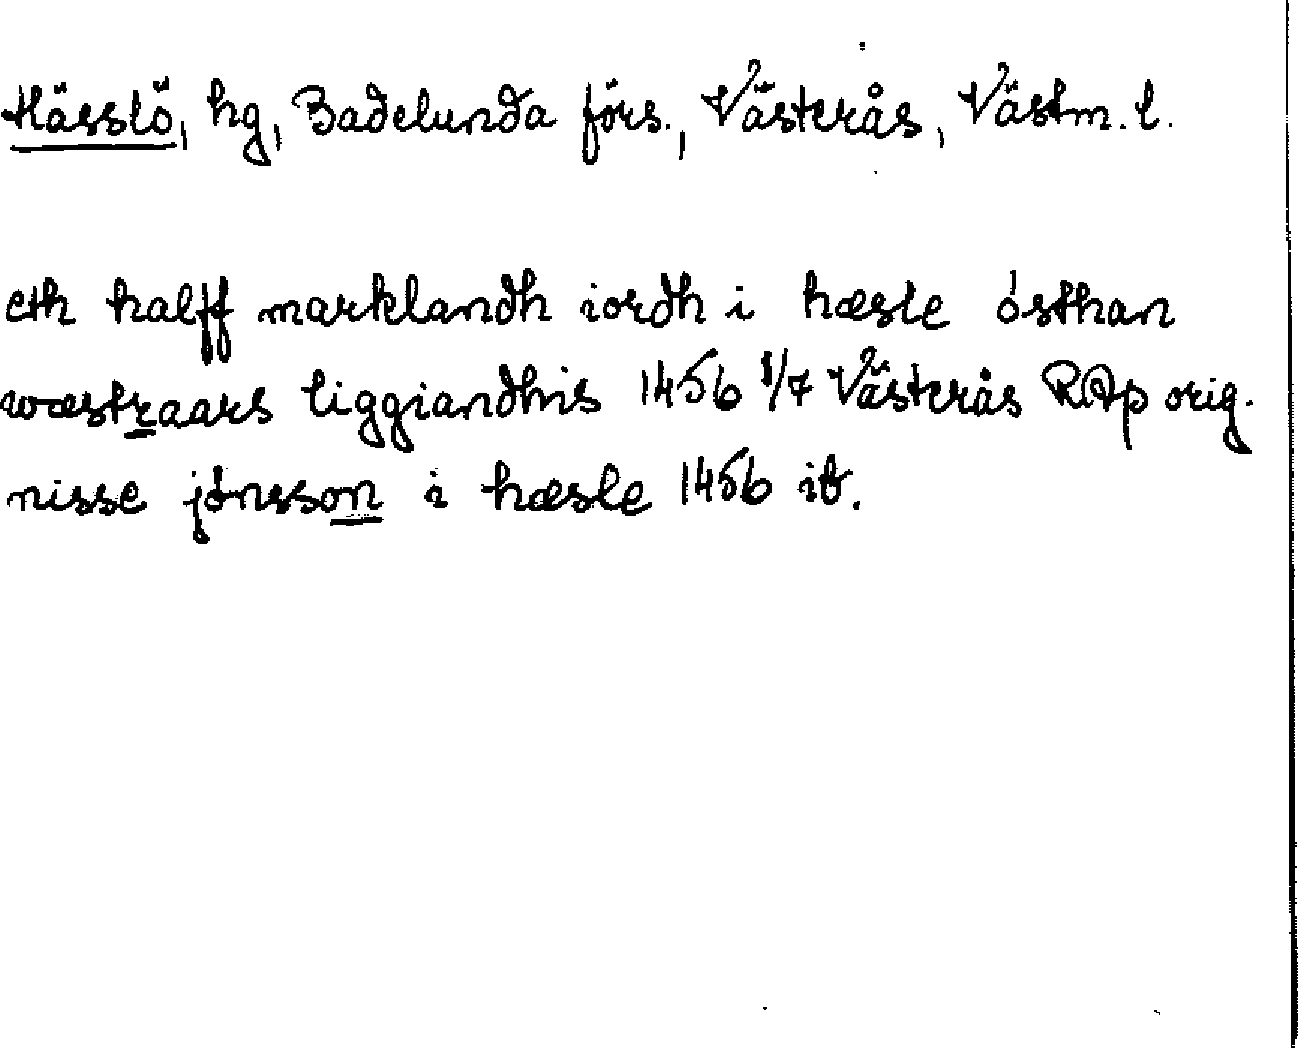 Hässlö, hg, Badelunda förs., Västerås, Västm. l.
eth halff marklandh iordh i hæsle ósthan
wæstraars liggiandhis 1456 1/7 Västerås RAp orig.
nisse jónsson i hæsle 1456 ib.